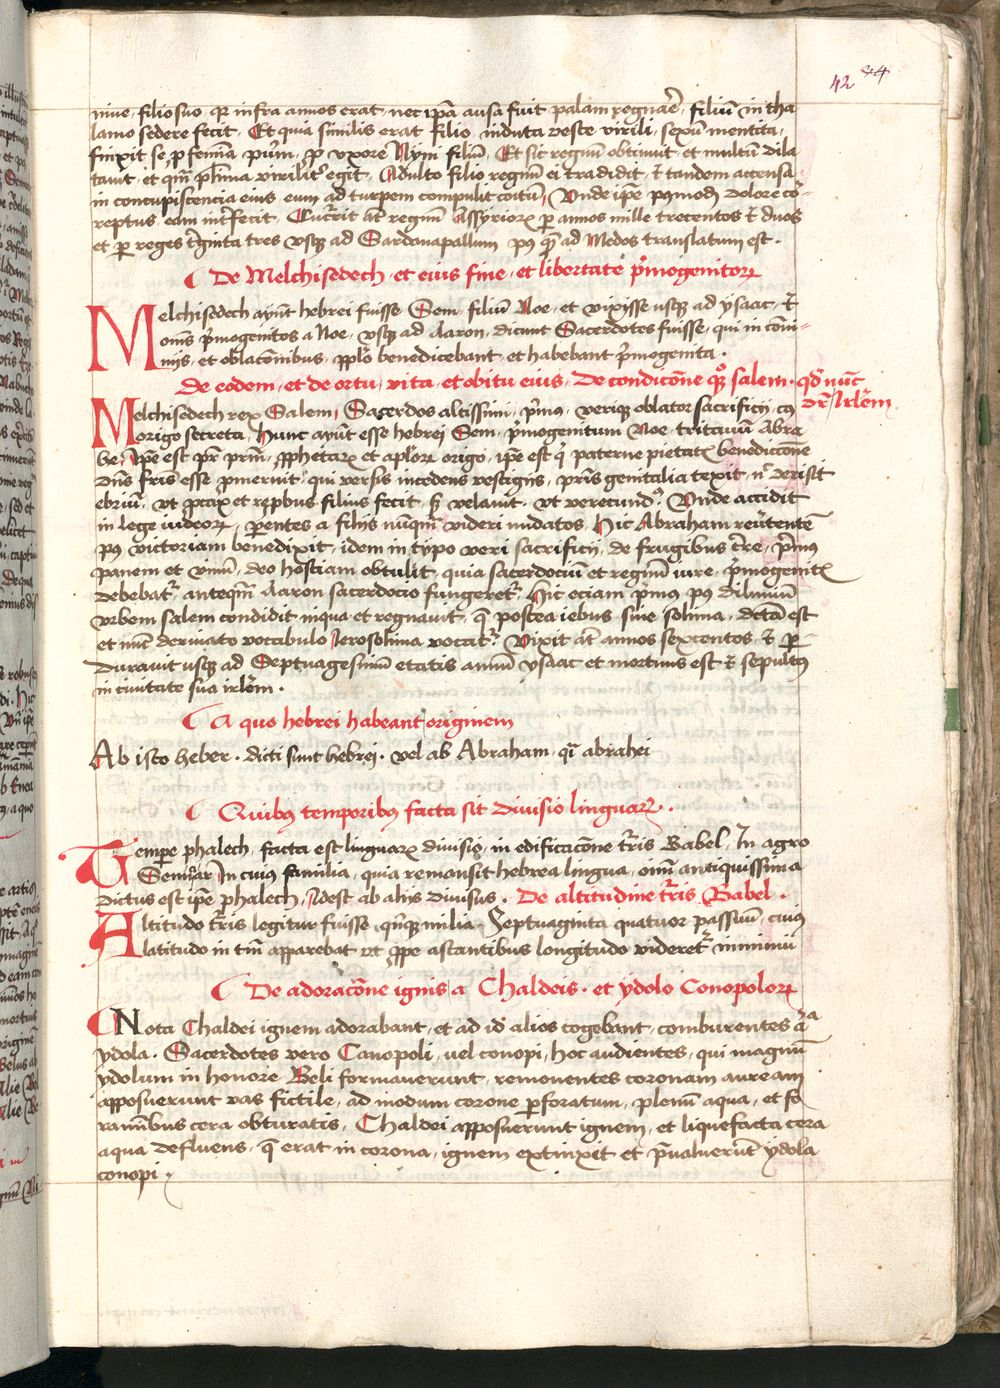 42 44
nive, filio suo, qr infra annos erat, nec ipa ausa fuit palam regnare, filiu in tha
lamo sedere fecit, Et quia similis erat filio, induta veste virili, sexu mentita,
finxit se p femina puru, p uxore Nyni filiu, Et sic regnu obtinuit et multu dila
tavit, et qm plima virilit egit, Adulto filio regnu ei tradidit, et tandem accensa
in concupiscencia eius, eum ad turpem compulit coitu, Unde ipe postmod dolore cor-
reptus, eam interfecit, Cucurrit at regnu Assyrior p annos mille trecentos et duos
et p reges triginta tres usq ad Sardanapallum, post q ad Medos translatum est.
De Melchisedech, et eius fine, et libertate pmogenitor
Melchisedech ayut hebrei fuisse Sem, filiu Noe, et vixisse usq ad ysaac, et
omis pmogenitos a Noe, usq ad Aaron, dicunt Sacerdotes fuisse, qui in convi-
viis, et oblaconibus, pplo benedicebant, et habebant pmogenita.
De eodem, et de ortu, vita, et obitu eius, De condicone quoq salem, qd nuc
dr Irlem
Melchisedech rex Salem, Sacerdos altissimi, pmus, veriq oblator sacrificii, cuius
origo secreta, Hunc ayut esse hebrei Sem, pmogenitum Noe, tritavu Abra
he, Ipe est pr prim, pphetar et aplor origo, ipe est q paterne pietatis benediccone
dns fris esse pmeruit, qui versis incedens vestigiis, pris genitalia texit, n derisit
ebriu, ut pcax et repbus filius fecit, s velavit, ut verecund, Unde accidit
in lege iudeor, parentes a filiis nuqm videri nudatos, Hic Abraham reutente
post victoriam benedixit, idem in typo veri sacrificii, de frugibus tre, pmus
panem et vinu, deo hostiam obtulit, quia sacerdociu et regnu iure, pmogenit
debebat, anteqm Aaron sacerdocio fungeret, Hic eciam pmus post diluvium
urbem salem condidit in qua et regnavit, q postea iebus sive solima, dcta est
et nuc derivato vocabulo Ierosolima vocat, Vixit at annos sexcentos, et p-
duravit usq ad Septuagesimu etatis annu ysaac et mortuus est et sepultus
in civitate sua irlem.
A quo hebrei habeant originem
Ab isto heber, dicti sunt hebrei, vel ab Abraham, q abrahei
Quibus temporibus facta sit divisio linguar.
Tempe phalech, facta est linguar divisio, in edificacone turris Babel, In agro
Sennar, In cuius familia, quia remansit hebrea lingua, oim antiquissima
dictus est ipe phalech, Idest ab aliis divisus. De altitudine turris Babel.
Altitudo turris legitur fuisse, quinq milia, Septuaginta quatuor passuu, cuius
latitudo in tm apparebat ut ppe astantibus longitudo videret, minimu
De adoracone ignis a Chaldeis, et ydolo Conopolor
Nota Chaldei ignem adorabant, et ad id alios cogebant, comburentes alia
ydola. Sacerdotes vero Canopoli, vel conopi, hoc audientes, qui magnu
ydolum in honore Beli formaverunt, removentes coronam auream
apposuerunt vas fictile, ad modum corone pforatum, plenu aqua, et fo
raminibus cera obturatis, Chaldei apposuerunt ignem, et liquefacta cera
aqua defluens, q erat in corona, ignem extinxit et pvaluerut ydola
conopi.